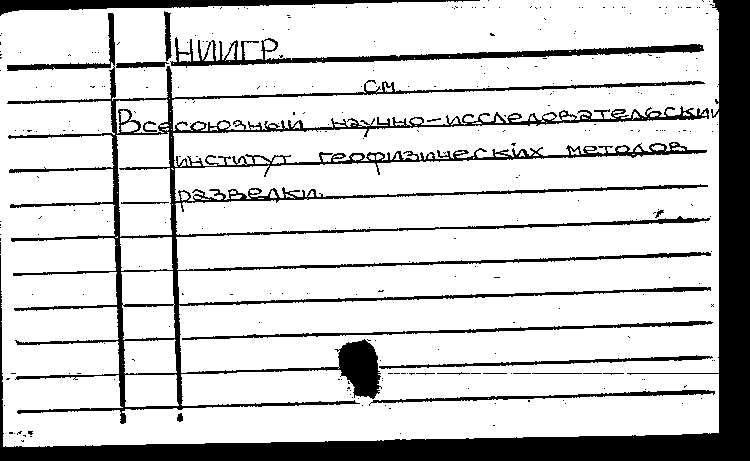 НИИГР.
см
Всесоюзный научно-исследовательский
институт геофизических методов
разведки.